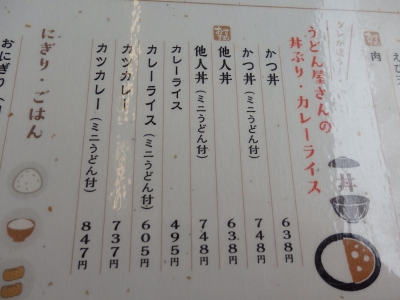 肉
ダシがちがう!
うどん屋さんの
丼ぶり・カレーライス
丼
かつ丼 638円
かつ丼(ミニうどん付) 748円
他人丼 638円
他人丼(ミニうどん付) 748円
カレーライス 495円
カレーライス(ミニうどん付) 605円
カツカレー 737円
カツカレー(ミニうどん付) 847円
にぎり・ごはん
おにぎり